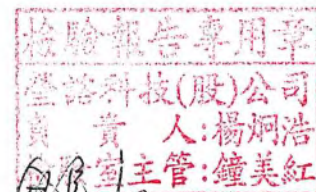 檢驗報告專用章
瑩諮科技(股)公司
負責人:楊炯浩
室主管:鐘美紅